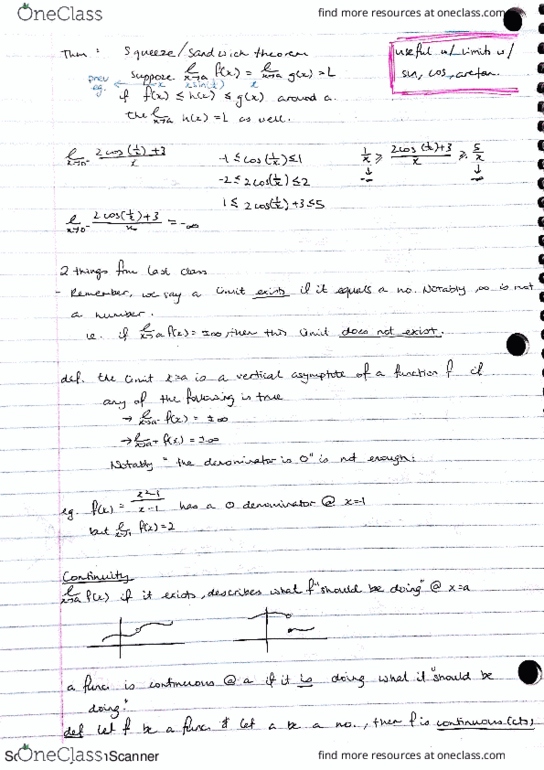 OneClass
find more resources at oneclass.com
Thm : Squeeze/Sandwich theorem
useful w/ limits w/
sin, cos, arctan.
suppose lim x→a f(x) = lim x→a g(x) = L
prev eg. -x xsin(1/x) x
if f(x) ≤ h(x) ≤ g(x) around a.
the lim x→a h(x) = L as well.
lim x→0⁻ (2cos(1/x)+3)/x
-1 ≤ cos(1/x) ≤ 1
1/x ≥ (2cos(1/x)+3)/x ≥ 5/x
-2 ≤ 2cos(1/x) ≤ 2
↓ -∞ ↓ -∞
1 ≤ 2cos(1/x)+3 ≤ 5
lim x→0⁻ (2cos(1/x)+3)/x = -∞
2 things from last class
- Remember, we say a limit exists if it equals a no. Notably, ∞ is not
a number.
ie. if lim x→a f(x) = ±∞, then this limit does not exist.
def. the limit x=a is a vertical asymptote of a function f if
any of the following is true
→ lim x→a⁻ f(x) = ±∞
→ lim x→a⁺ f(x) = ±∞
Notably "the denominator is 0" is not enough:
eg. f(x) = (x²-1)/(x-1) has a 0 denominator @ x=1
but lim x→1 f(x) = 2
Continuity
lim x→a f(x) if it exists, describes what f "should be doing" @ x=a
a func. is continuous @ a if it is doing what it "should be
doing."
def let f be a func. & let a be a no., then f is continuous (cts)
OneClass
Scanner
find more resources at oneclass.com